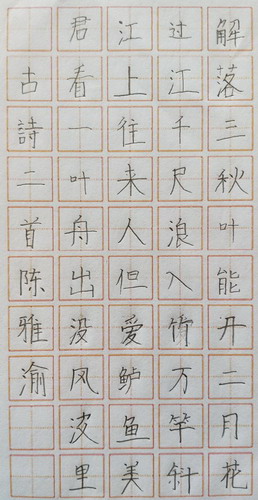 解落三秋叶能开二月花
过江千尺浪入竹万竿斜
江上往来人但爱鲈鱼美
君看一叶舟出没风波里
古詩二首陈雅渝